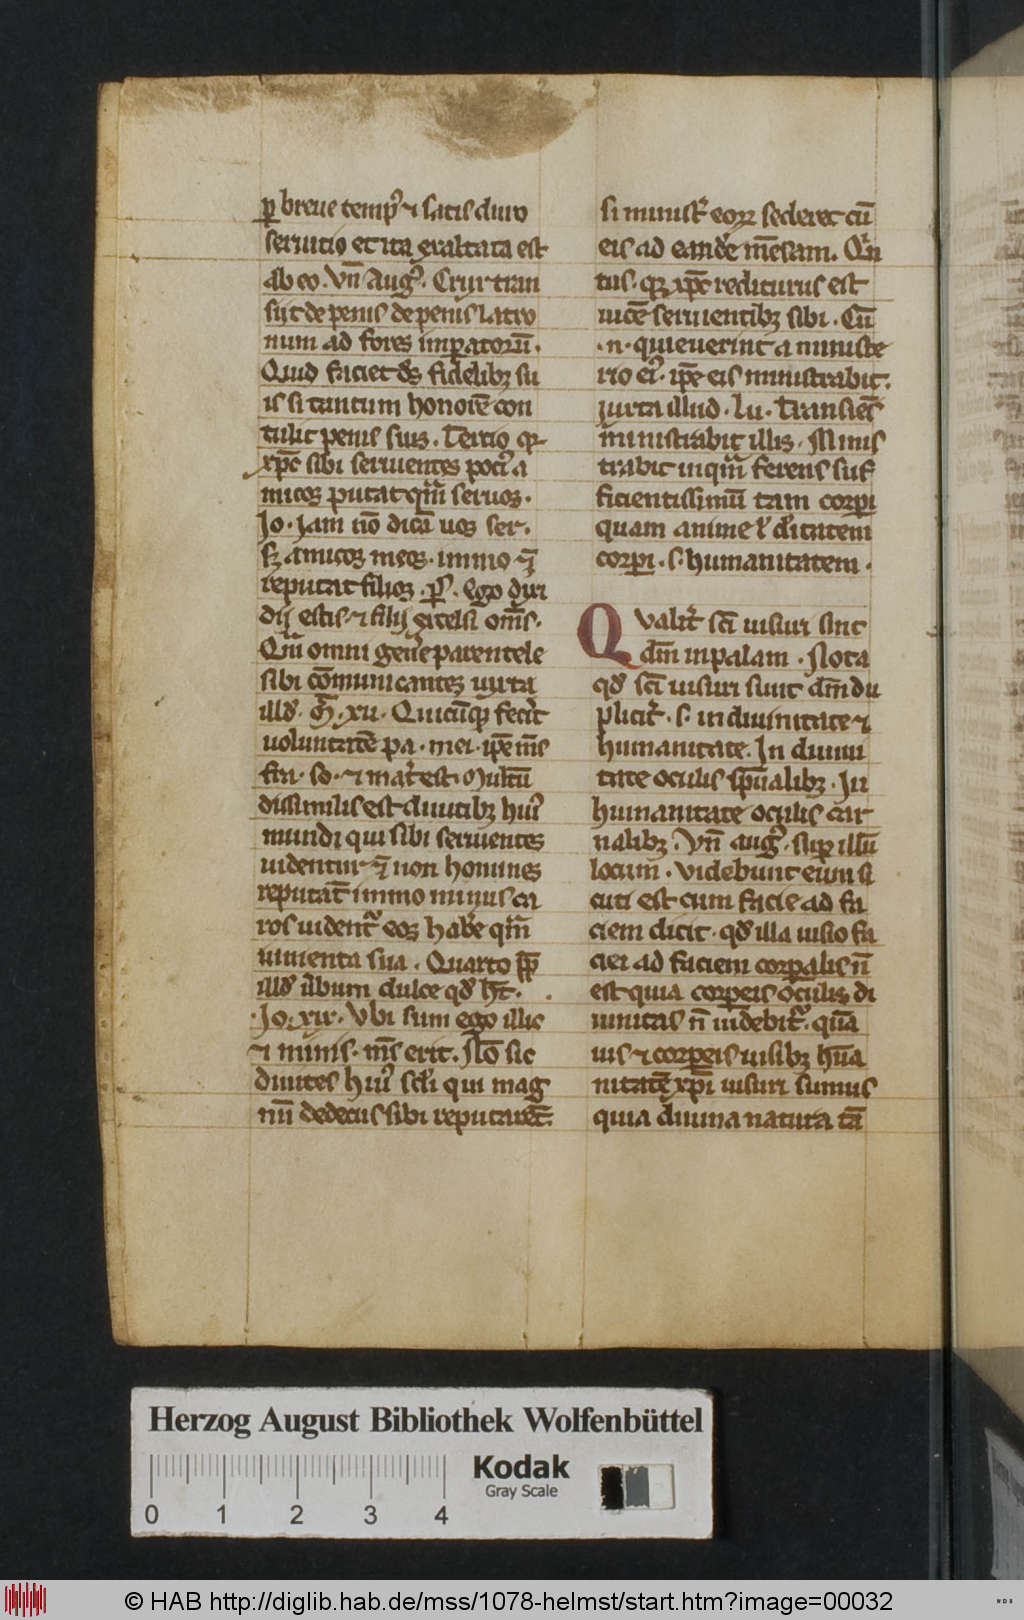 ꝑ breue tempꝰ ⁊ satis duro
seruitio et ita exaltata est
ab eo. Vñ Augꝰ. Crux tran
siit de penis de penis latro
num ad fores imꝑatorū.
Quid faciet ds̄ fidelibꝫ su
is si tantum honorē con
tulit penis suis. Tertio qꝛ
xp̄c sibi seruientes pociꝰ a
micos putat qm̄ seruos.
Jo. Jam nō dicā uos ser.
sꝫ amicos meos. immo ⁊
reputat filios. p̄s. Ego dixi
dij estis ⁊ filij excelsi om̄s.
Qm̄ omni gen̄e parentele
sibi cōmunicantes iuxta
illd̄. M̄. xii. Quicūqꝫ fecit̉
uoluntatē pa. mei. ip̄e m̄s
fr̄a. so. ⁊ mat̉ est. Multū
dissimilis est diuitibꝫ huiꝰ
mundi qui sibi seruientes
uidentur ⁊ non homines
reputāt immo minus ca
ros uident᷑ eos hab̄e qm̄
iumenta sua. Quarto ꝓp̄
illd̄ ūbum dulce qd̄ hr̄.
Jo. xii. Vbi sum ego illic
⁊ minis. m̄s erit. Nō sic
diuites huiꝰ scl̄i qui mag
nū dedecus sibi reputarēt
si minist̉ eoꝝ sederet cū
eis ad eand̄e mēsam. Qȧr
tus. qꝛ xp̄c rediturus est
uicē seruientibꝫ sibi. Cū
.n. quieuerint a ministe
rio eiꝰ. ip̄e eis ministrabit.
iuxta illud. Lu. Transiēs
ministrabit illis. Minis
trabit inqm̄ ferens suf
ficientissimū tam corpi
quam anime ł dītatem
corpi. s. humanitatem.
Qvalit̉ sc̄i uisuri sint
dm̄ in palam. Nota
qd̄ sc̄i uisuri sunt dm̄ du
plicit̉. s. in diuinitate ⁊
humanitate. In diuini
tate oculis sp̄ualibꝫ. In
humanitate oculis car
nalibꝫ. Vñ augꝰ. suꝑ illū
locum. videbunt eum si
cuti est cum facie ad fa
ciem dicit. qd̄ illa uisio fa
ciei ad faciem corꝑalis n̄
est quia corꝑeis oculis di
uinitas n̄ uidebit᷑. quā
uis ⁊ corꝑeis uisibꝫ hūa
nitatē xp̄i uisuri sumus
quia diuina natura tā
Herzog August Bibliothek Wolfenbüttel
Kodak
Gray Scale
0 1 2 3 4
© HAB http://diglib.hab.de/mss/1078-helmst/start.htm?image=00032